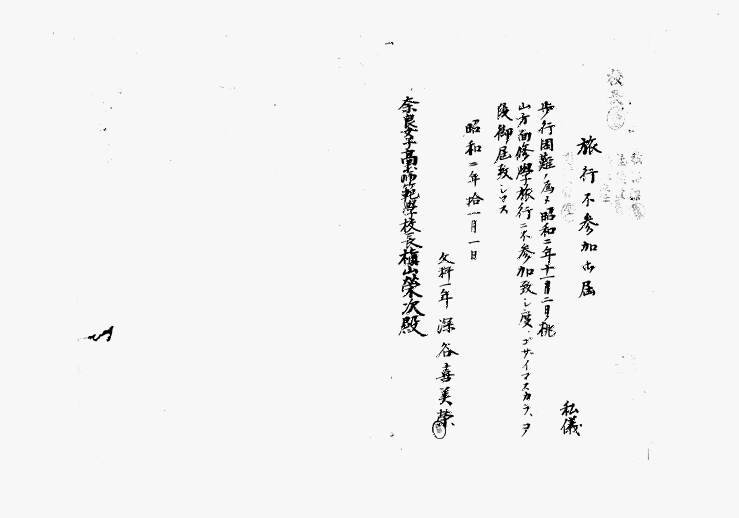 校長
旅行不参加御届
私儀
歩行困難ノ為メ昭和二年十一月二日桃
山方面修學旅行ニ不参加致シ度ゴザイマスカラ、
段御届致シマス
昭和二年拾一月一日
文科一年 深谷喜美榮
奈良女子高等師範學校長槇山榮次殿